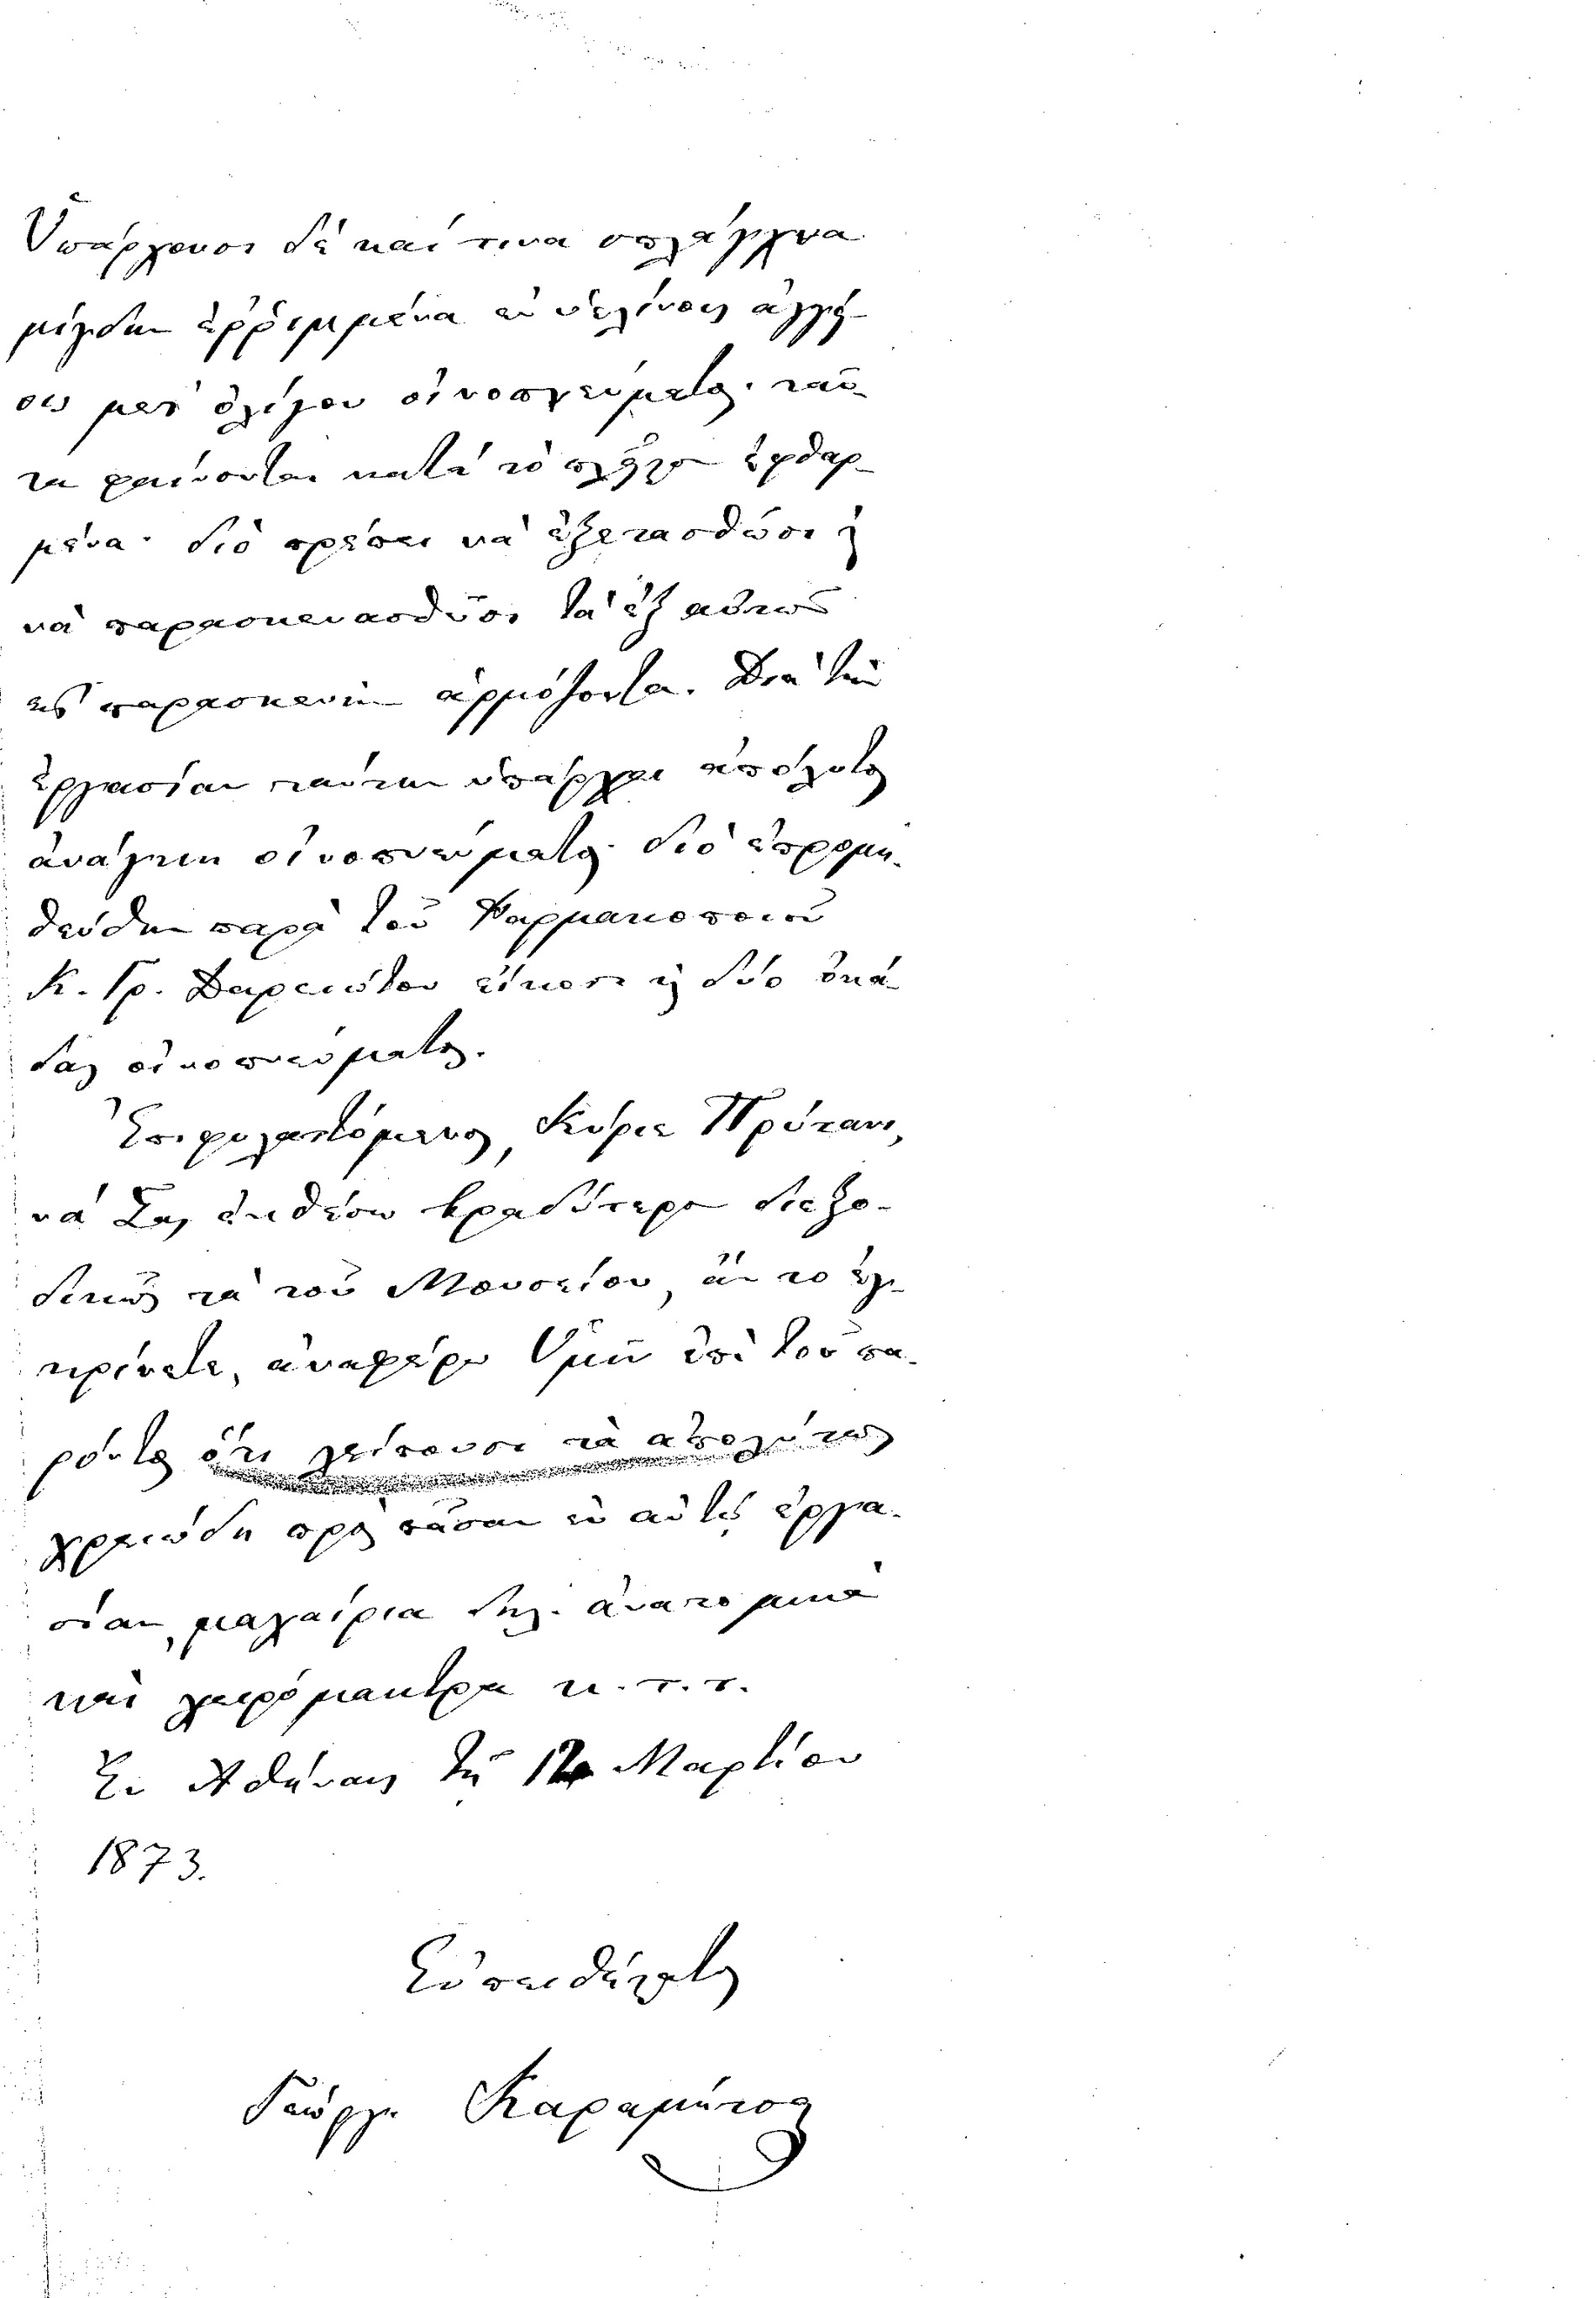 Ὑπάρχουσι δὲ καί τινα σπλάγχνα
μίγδην ἐρριμμένα ἐν ὑελίνοις ἀγγεί-
οις μετ' ὀλίγου οἰνοπνεύματος· ταῦ-
τα φαίνονται κατὰ τὸ πλεῖστον ἐφθαρ-
μένα· διὸ πρέπει νὰ ἐξετασθῶσι ἢ
νὰ παρασκευασθῶσι τὰ ἐξ αὐτῶν
εἰς παρασκευὴν ἁρμόζοντα. Διὰ τὴν
ἐργασίαν ταύτην ὑπάρχει ἀπόλυτος
ἀνάγκη οἰνοπνεύματος· διὸ ἐπρομη-
θεύθην παρὰ τοῦ Φαρμακοποιοῦ
Κ. Γρ. δύο ὀκά-
δας οἰνοπνεύματος.
Ἐπιφυλαττόμενος, Κύριε Πρύτανι,
νὰ Σᾶς ἐκθέσω βραδύτερον διεξο-
δικῶς τὰ τοῦ Μουσείου, ἂν τὸ ἐγ-
κρίνετε, ἀναφέρω Ὑμῖν ἐπὶ τοῦ πα-
ρόντος ὅτι λείπουσι τὰ ἀπολύτως
χρειώδη πρὸς πᾶσαν ἐν αὐτῷ ἐργα-
σίαν, μαχαίρια δηλ. ἀνατομικὰ
καὶ χειρόμακτρα κ.τ.τ.
Ἐν Ἀθήναις τῇ Μαρτίου
1873.
Εὐπειθέστατος
Γεώργιος Καραμήτσας